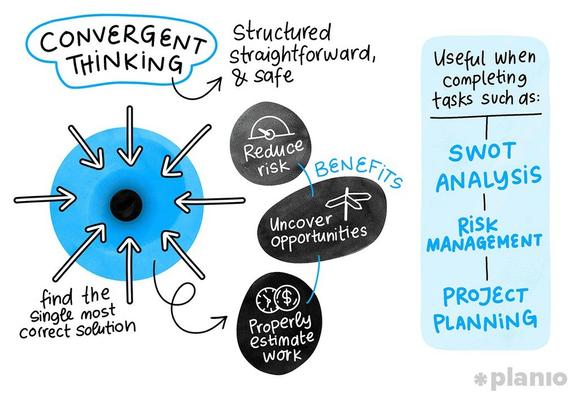 CONVERGENT
THINKING
Structured
straightforward,
& safe
find the
single most
correct solution
BENEFITS
Reduce
risk
Uncover
opportunities
$
Properly
estimate
work
Useful when
completing
tasks such as:
SWOT
ANALYSIS
RISK
MANAGEMENT
PROJECT
PLANNING
*planio